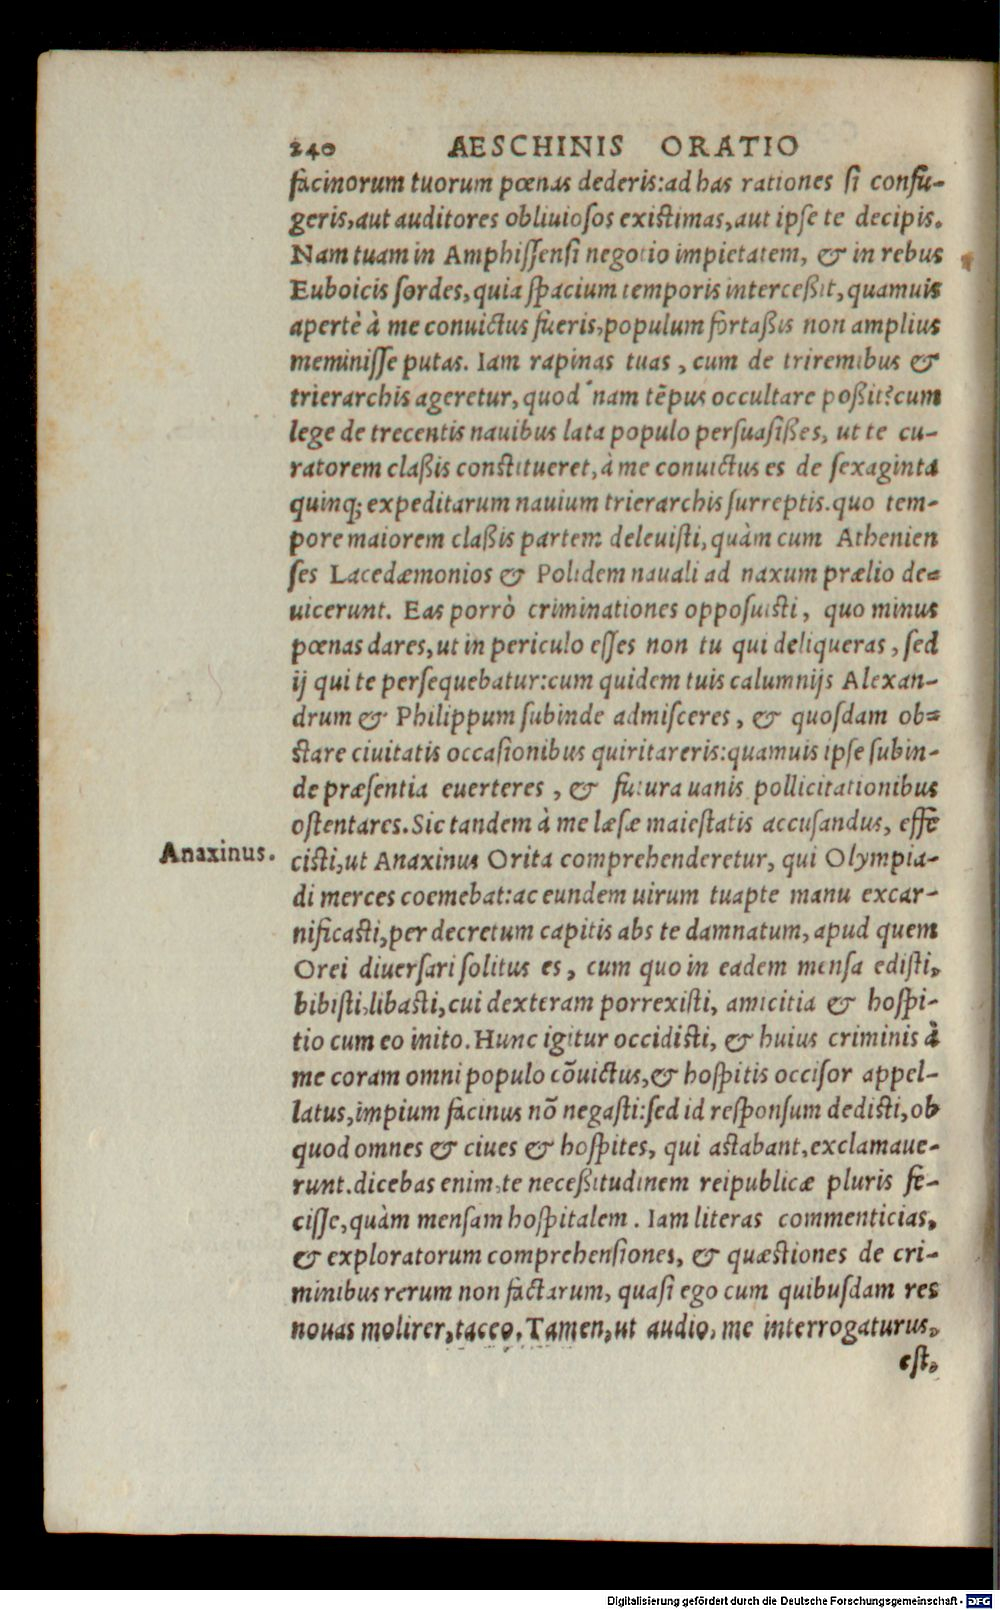 240 AESCHINIS ORATIO
facinorum tuorum pœnas dederis:ad has rationes si confu-
geris,aut auditores obliuiosos existimas,aut ipse te decipis.
Nam tuam in Amphissensi negotio impietatem, & in rebus
Euboicis sordes,quia spacium temporis interceßit,quamuis
apertè à me conuictus fueris,populum fortaßis non amplius
meminisse putas. Iam rapinas tuas , cum de triremibus &
trierarchis ageretur, quod nam tẽpus occultare poßit?cum
lege de trecentis nauibus lata populo persuasißes, ut te cu-
ratorem claßis constitueret, à me conuictus es de sexaginta
quinq; expeditarum nauium trierarchis surreptis.quo tem-
pore maiorem claßis partem deleuisti, quàm cum Athenien
ses Lacedæmonios & Pollidem nauali ad naxum prælio de-
uicerunt. Eas porrò criminationes opposuisti, quo minus
pœnas dares,ut in periculo esses non tu qui deliqueras, sed
ij qui te persequebatur:cum quidem tuis calumnijs Alexan-
drum & Philippum subinde admisceres, & quosdam ob-
stare ciuitatis occasionibus quiritareris:quamuis ipse subin-
de præsentia euerteres , & futura uanis pollicitationibus
ostentares.Sic tandem à me læsæ maiestatis accusandus, effe
Anaxinus. cisti,ut Anaxinus Orita comprehenderetur, qui Olympia-
di merces coemebat:ac eundem uirum tuapte manu excar-
nificasti,per decretum capitis abs te damnatum, apud quem
Orei diuersari solitus es, cum quo in eadem mensa edisti,
bibisti,libasti,cui dexteram porrexisti, amicitia & hospi-
tio cum eo inito. Hunc igitur occidisti, & huius criminis à
me coram omni populo cõuictus,& hospitis occisor appel-
latus,impium facinus nõ negasti:sed id responsum dedisti,ob
quod omnes & ciues & hospites, qui astabant,exclamaue-
runt.dicebas enim,te neceßitudinem reipublicæ pluris fe-
cisse,quàm mensam hospitalem . Iam literas commenticias,
& exploratorum comprehensiones, & quæstiones de cri-
minibus rerum non factarum, quasi ego cum quibusdam res
nouas molirer,taceo. Tamen,ut audio, me interrogaturus,
est,
Digitalisierung gefördert durch die Deutsche Forschungsgemeinschaft - DFG